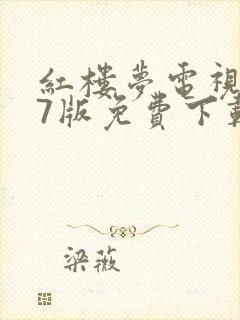 紅樓夢電視
7版免費下載
梁薇